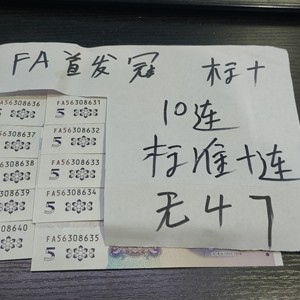 FA首发冠 标十
10连
标准十连
无47
FA56308636
FA56308631
5
5
FA56308637
FA56308632
5
5
FA56308638
FA56308633
5
5
FA56308639
FA56308634
5
FA56308640
FA56308635
5